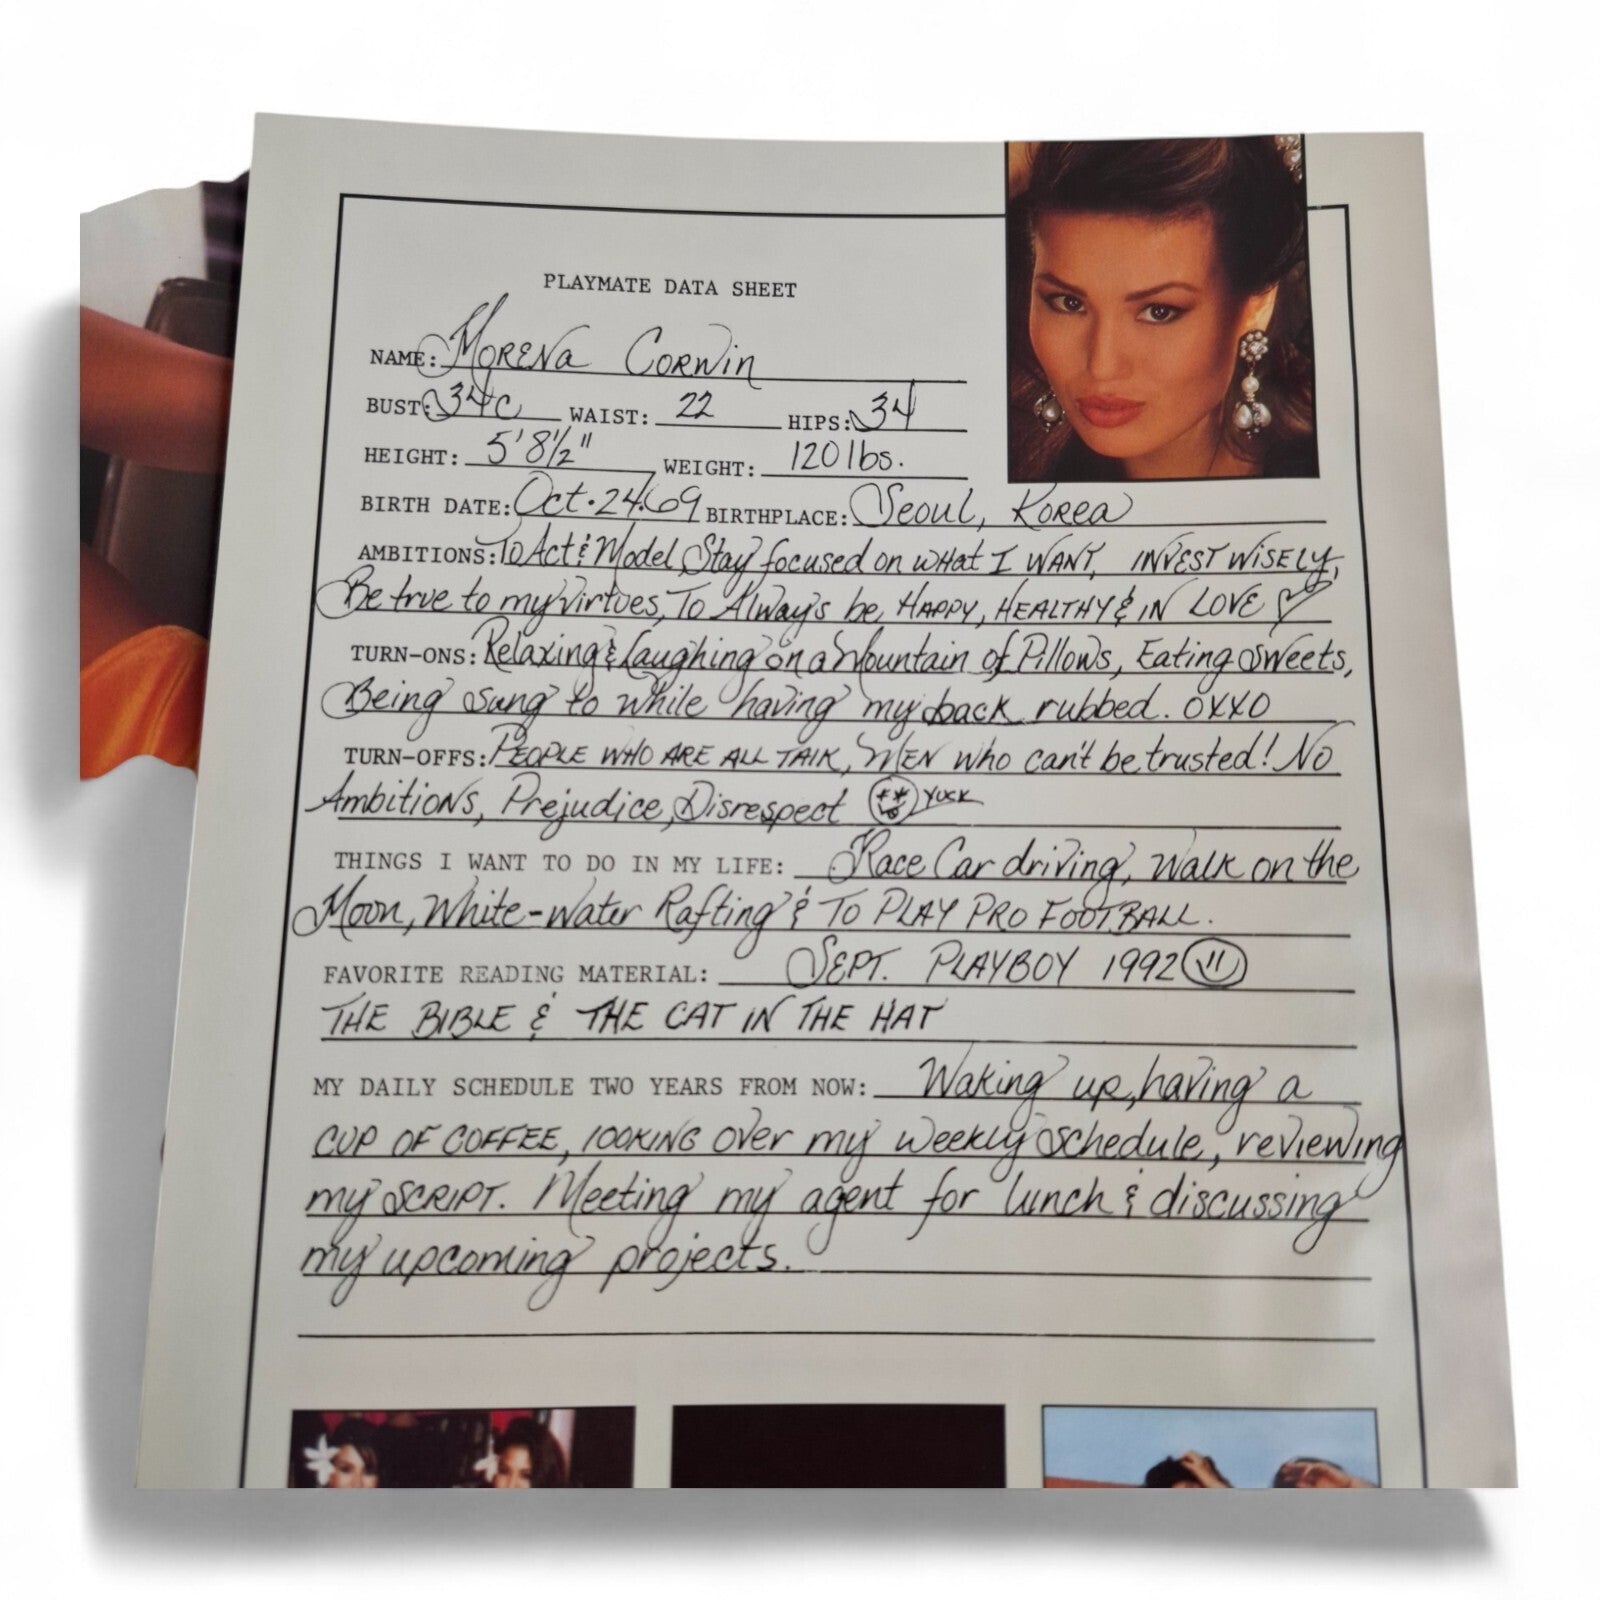 PLAYMATE DATA SHEET
NAME: Morena Corwin
BUST: 34C WAIST: 22 HIPS: 34
HEIGHT: 5'8½" WEIGHT: 120 lbs.
BIRTH DATE: Oct. 24, 69 BIRTHPLACE: Seoul, Korea
AMBITIONS: To Act & Model, Stay focused on what I WANT, INVEST WISELY,
Be true to my Virtues, To Always be HAPPY, HEALTHY & IN LOVE
TURN-ONS: Relaxing & Laughing on a Mountain of Pillows, Eating Sweets,
Being sung to while having my back rubbed. OXXO
TURN-OFFS: PEOPLE WHO ARE ALL TALK, MEN who can't be trusted! No
Ambitions, Prejudice, Disrespect YUCK
THINGS I WANT TO DO IN MY LIFE: Race Car driving, Walk on the
Moon, White-Water Rafting & TO PLAY PRO FOOTBALL.
FAVORITE READING MATERIAL: SEPT. PLAYBOY 1992
THE BIBLE & THE CAT IN THE HAT
MY DAILY SCHEDULE TWO YEARS FROM NOW: Waking up, having a
CUP OF COFFEE, looking over my weekly schedule, reviewing
my SCRIPT. Meeting my agent for lunch & discussing
my upcoming projects.